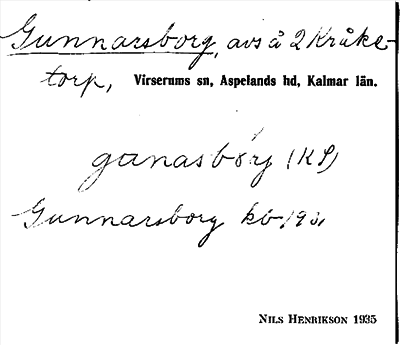 Gunnarsborg, avs å 2 Kråke-
torp, Virserums sn, Aspelands hd, Kalmar län.
gunasbórg (KP)
Gunnarsborg kb 193
NILS HENRIKSON 1935